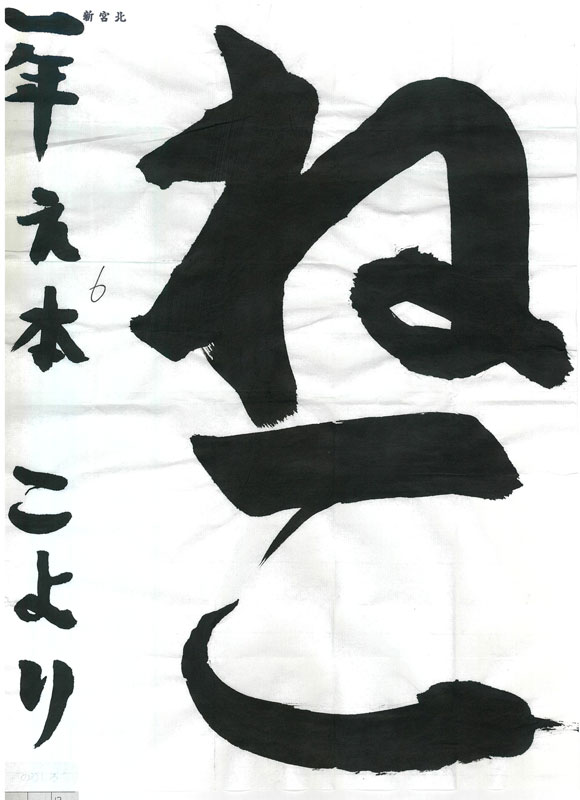 ねこ
新宮北
一年 え本 こより
6